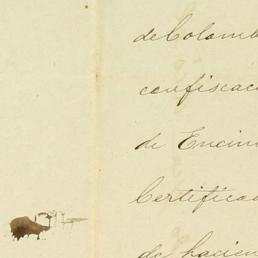 de Colomb
confiscac
de Encin
Certifica
de hacien